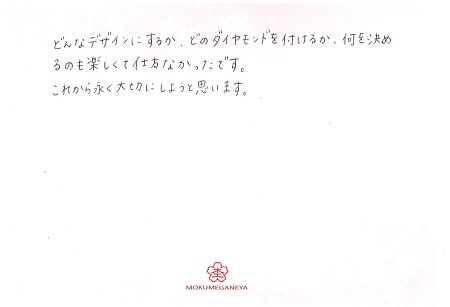 どんなデザインにするか、どのダイヤモンドを付けるか、何を決め
るのも楽しくて仕方なかったです。
これから永く大切にしようと思います。
MOKUMEGANEYA